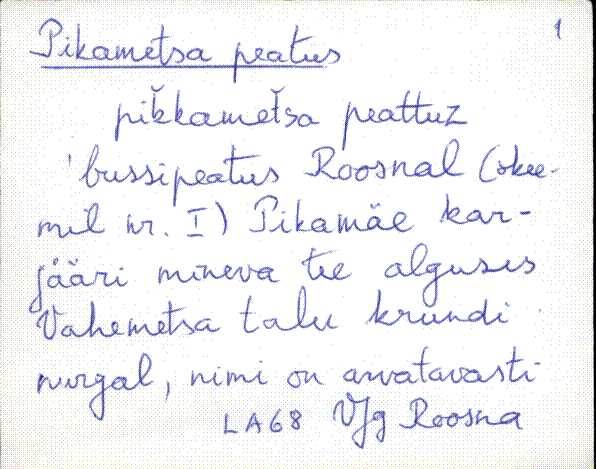 1
Pikametsa peatus
pik̆kamet̆sa peattuz
'bussipeatus Roosnal (skee-
mil nr. I) Pikamäe kar-
jääri mineva tee alguses
Vahemetsa talu krundi
nurgal, nimi on arvatavasti
LA68 VJg Roosna